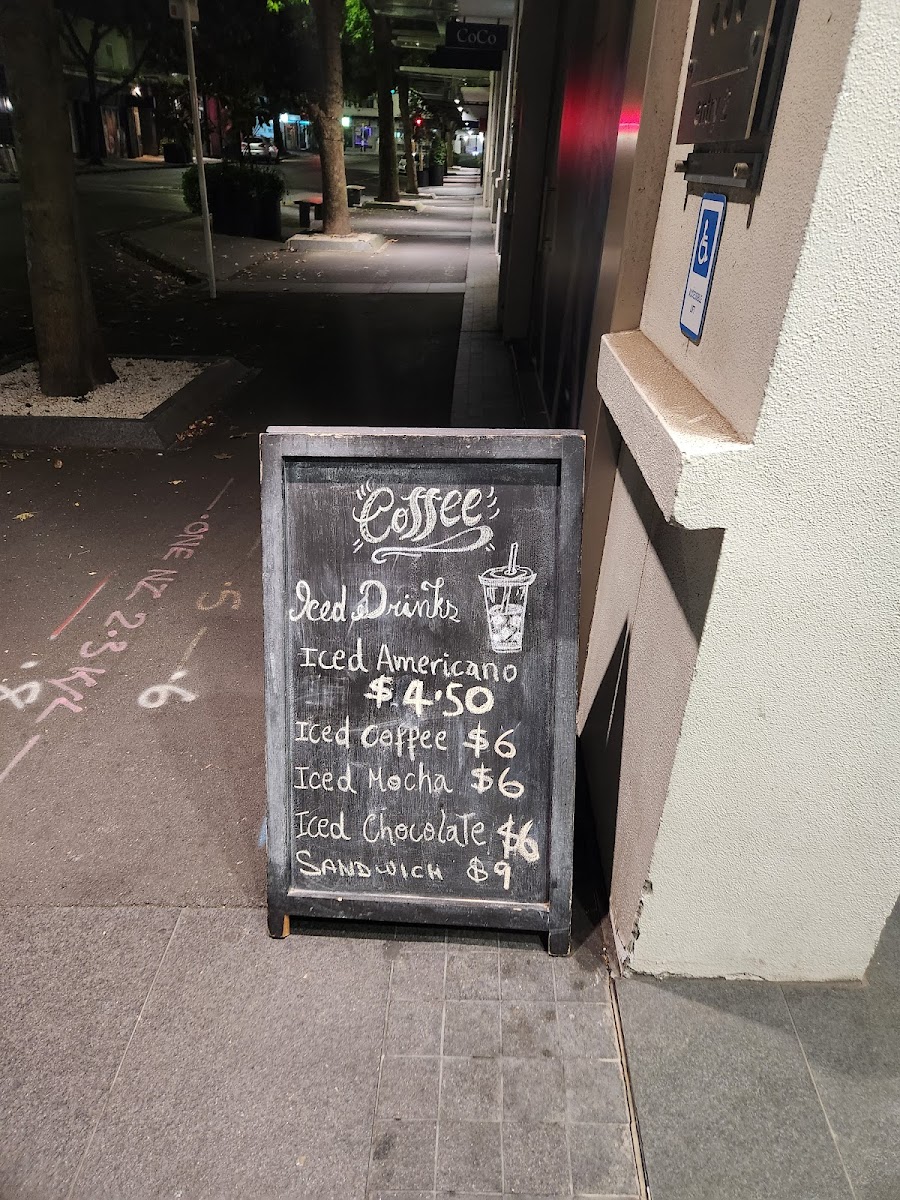 CoCo
Coffee
Iced Drinks
Iced Americano
$4.50
Iced Coffee $6
Iced Mocha $6
Iced Chocolate $6
SANDWICH $9
ONE NZ 2.3 KM
.5
.6